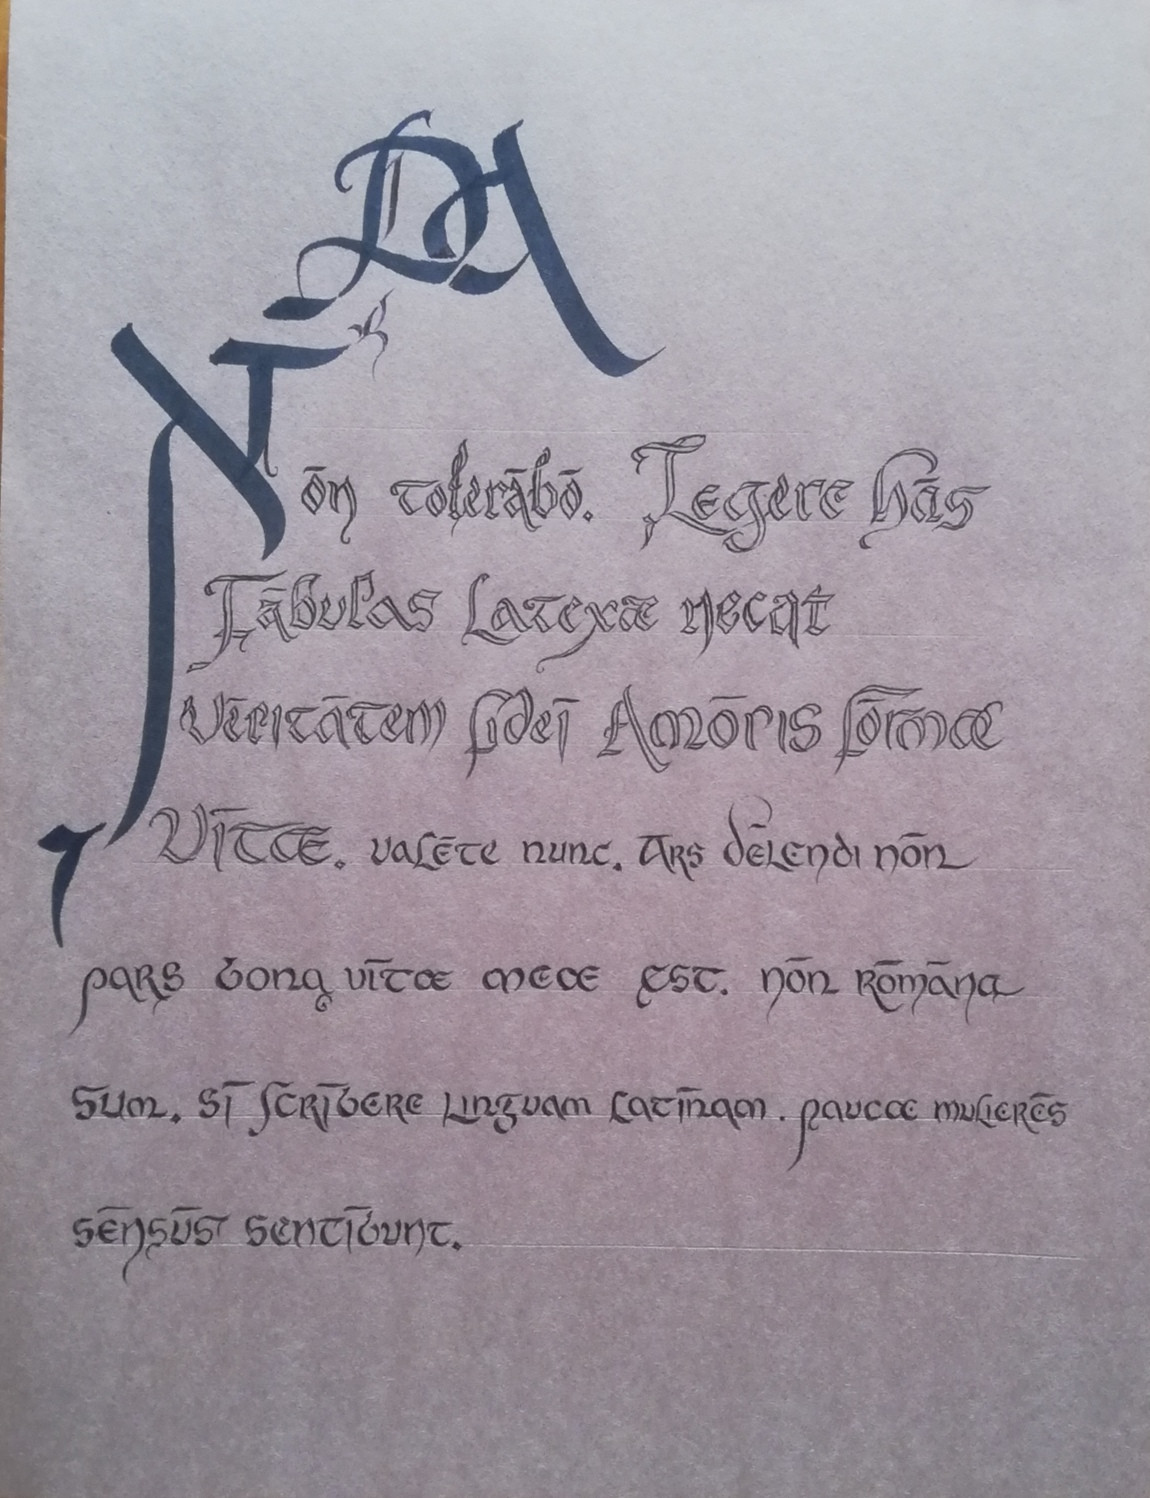 Nōn tolerābō. Legere hās
Tābulas Latexæ necat
Vēritātem fideī Amōris fōrmæ
Vītæ. valēte nunc. Ars dēlendi nōn
pars bona vītæ meæ est. nōn Rōmāna
sum. sī scrībere linguam Latīnam. paucæ mulierēs
sēnsūs sentībunt.